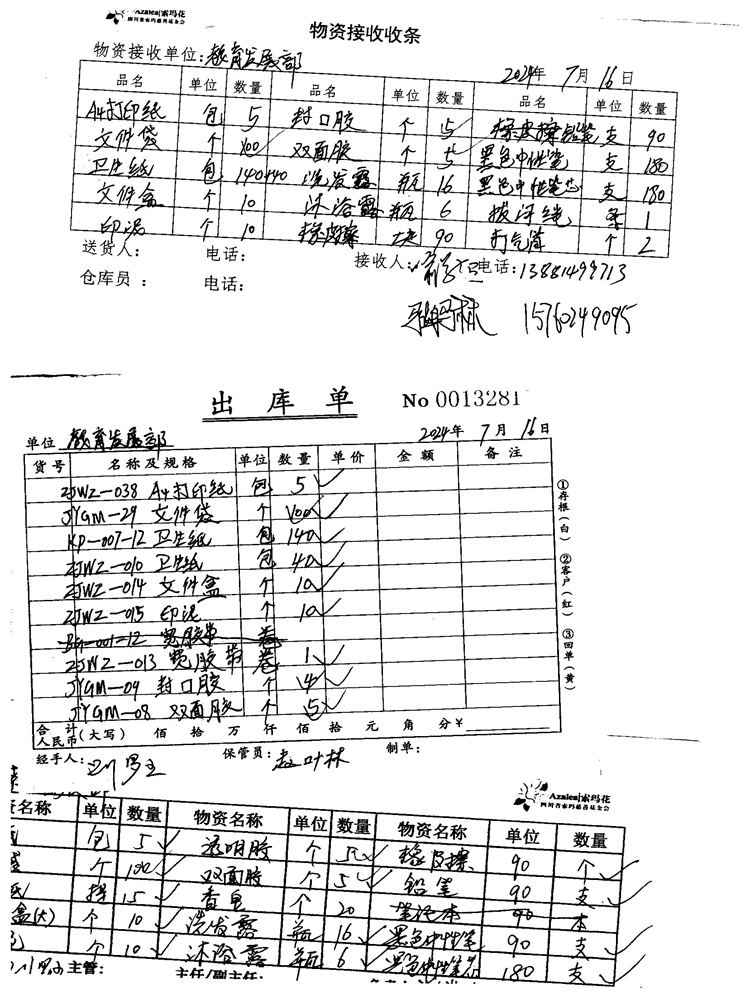 Azalea|索玛花
四川省索玛慈善基金会
物资接收收条
物资接收单位:教育发展部
2024年 7月 16日
品名 单位 数量 品名 单位 数量 品名 单位 数量
A4打印纸 包 5 封口胶 个 5 橡皮擦铅笔 支 90
文件袋 个 100 双面胶 个 5 黑色中性笔 支 180
卫生纸 包 140+40 洗发露 瓶 16 黑色中性笔芯 支 180
文件盒 个 10 沐浴露 瓶 6 拔河绳 条 1
印泥 个 10 橡皮擦 块 90 打气筒 个 2
送货人: 电话: 接收人: 电话:13881499713
仓库员: 电话:
15760249095
出库单 No 0013281
单位 教育发展部 2024年 7月 16日
货号 名称及规格 单位 数量 单价 金额 备注
ZJWZ-038 A4打印纸 包 5
JYGM-29 文件袋 个 100
KP-007-12 卫生纸 包 140
ZJWZ-010 卫生纸 包 40
ZJWZ-014 文件盒 个 10
ZJWZ-015 印泥 个 10
宽胶带 卷
ZJWZ-013 宽胶带 卷 1
JYGM-09 封口胶 个 4
JYGM-08 双面胶 个 5
合计人民币(大写) 佰 拾 万 仟 佰 拾 元 角 分¥
经手人: 保管员:赵叶林 制单:
①存根(白) ②客户(红) ③回单(黄)
Azalea|索玛花
四川省索玛慈善基金会
名称 单位 数量 物资名称 单位 数量 物资名称 单位 数量
包 5 透明胶 个 5 橡皮擦 90 个
个 100 双面胶 个 5 铅笔 90 支
纸 提 15 香皂 个 20 笔记本 90 本
盒(大) 个 10 洗发露 瓶 16 黑色中性笔 90 支
个 10 沐浴露 瓶 6 黑色中性笔芯 180 支
主管: 主任/副主任: